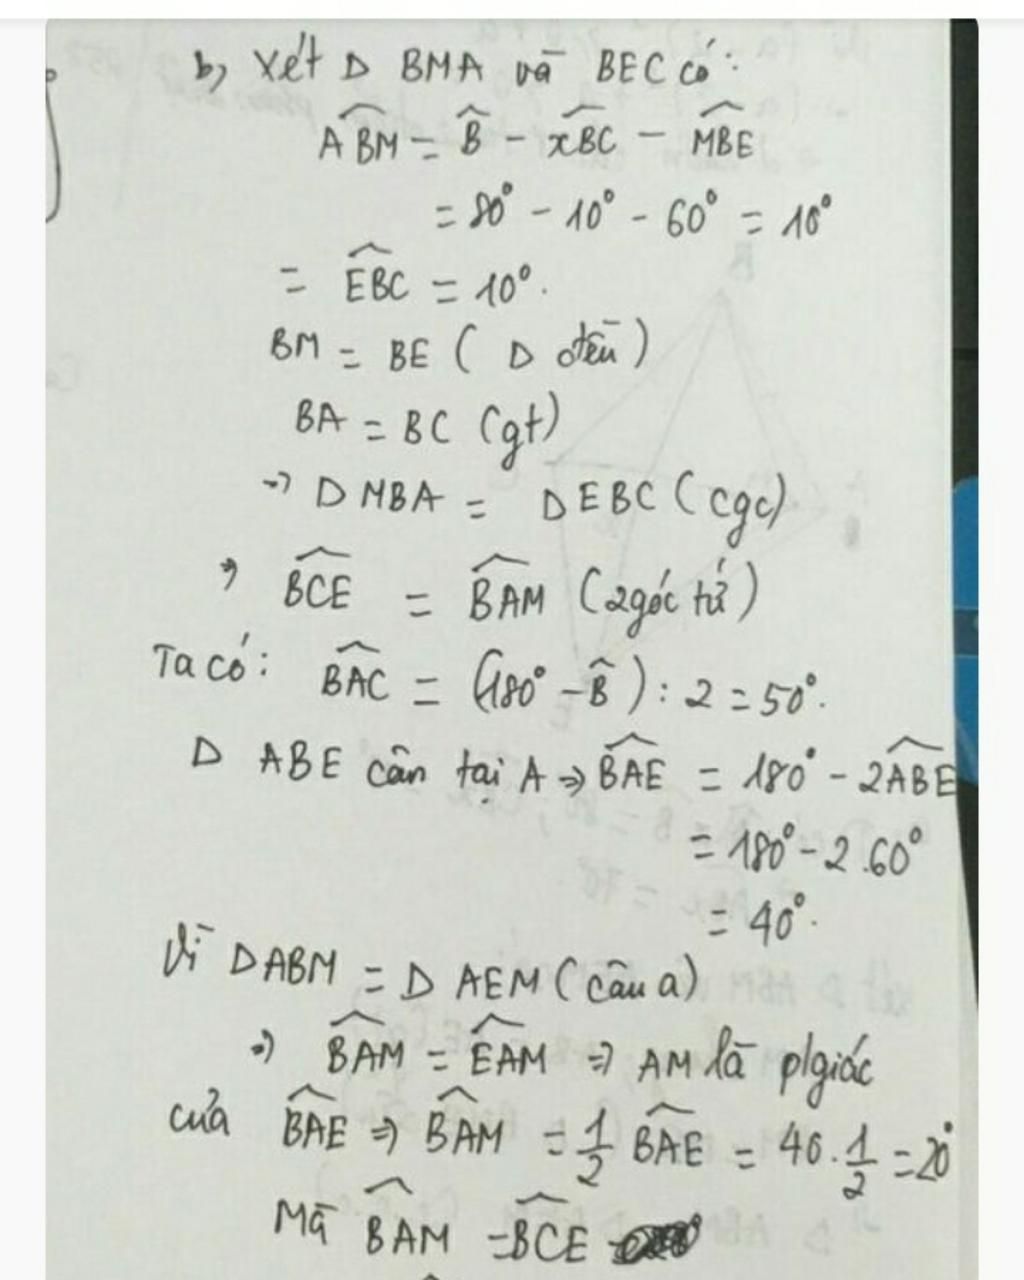 b, Xét Δ BMA và BEC có:
ABM = B - xBC - MBE
= 80° - 10° - 60° = 10°
= EBC = 10°.
BM = BE ( Δ đều )
BA = BC (gt)
→ Δ MBA = Δ EBC ( cgc)
⇒ BCE = BAM (2góc tứ )
Ta có: BAC = (180° - B) : 2 = 50°.
Δ ABE cân tại A ⇒ BAE = 180° - 2ABE
= 180° - 2.60°
= 40°.
Vì Δ ABM = Δ AEM ( câu a)
⇒ BAM = EAM ⇒ AM là p/giác
của BAE ⇒ BAM = 1/2 BAE = 40. 1/2 = 20°
Mà BAM = BCE